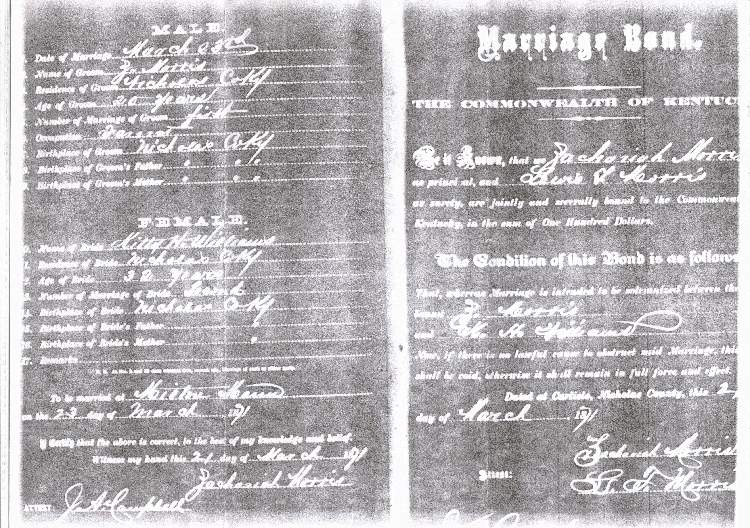 MALE.
Date of Marriage March 23rd
Name of Groom Z. Morris
Residence of Groom Nicholas Co Ky
Age of Groom 20 Years
Number of Marriage of Groom first
Occupation Farmer
Birthplace of Groom Nicholas Co Ky
Birthplace of Groom's Father " " "
Birthplace of Groom's Mother " " "
FEMALE.
Name of Bride Kitty H. Williams
Residence of Bride Nicholas Co Ky
Age of Bride Years
Number of Marriage of Bride
Birthplace of Bride Nicholas Co Ky
Birthplace of Bride's Father "
Birthplace of Bride's Mother "
Remarks
To be married at Milton Manns
on the 23 day of March 1871
I Certify that the above is correct, to the best of my knowledge and belief.
Witness my hand this 21 day of March 1871
Zachariah Morris
ATTEST: J. A. Campbell
Marriage Bond.
THE COMMONWEALTH OF KENTUC
Be it Known, that we Zachariah Morris
as principal, and Lewis T. Morris
as surety, are jointly and severally bound to the Commonwealt
Kentucky, in the sum of One Hundred Dollars.
The Condition of this Bond is as follows
That, whereas Marriage is intended to be solemnized between the
bound Z. Morris
and H. Williams
Now, if there is no lawful cause to obstruct said Marriage, this
shall be void, otherwise it shall remain in full force and effect.
Dated at Carlisle, Nicholas County, this 2
day of March 1871
Zachariah Morris
L. T. Morris
Attest: